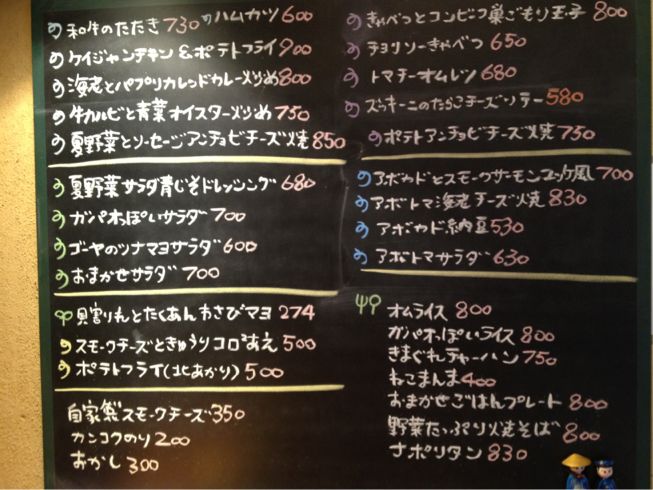 和牛のたたき 730 ハムカツ 600
ケイジャンチキン&ポテトフライ 900
海老とパプリカレッドカレー炒め 800
牛カルビと青菜オイスター炒め 750
夏野菜とソーセージアンチョビチーズ焼 850
夏野菜サラダ青じそドレッシング 680
ガパオっぽいサラダ 700
ゴーヤのツナマヨサラダ 600
おまかせサラダ 700
貝割れとたくあんわさびマヨ 274
スモークチーズときゅうりコロコロあえ 500
ポテトフライ(北あかり) 500
自家製スモークチーズ 350
カンコクのり 200
おかし 300
きゃべつとコンビーフ巣ごもり玉子 800
チョリソーきゃべつ 650
トマチーオムレツ 680
ズッキーニのたらこチーズソテー 580
ポテトアンチョビチーズ焼 750
アボカドとスモークサーモンユッケ風 700
アボトマ海老チーズ焼 830
アボカド納豆 530
アボトマサラダ 630
オムライス 800
ガパオっぽいライス 800
きまぐれチャーハン 750
ねこまんま 400
おまかせごはんプレート 800
野菜たっぷり焼そば 800
ナポリタン 830